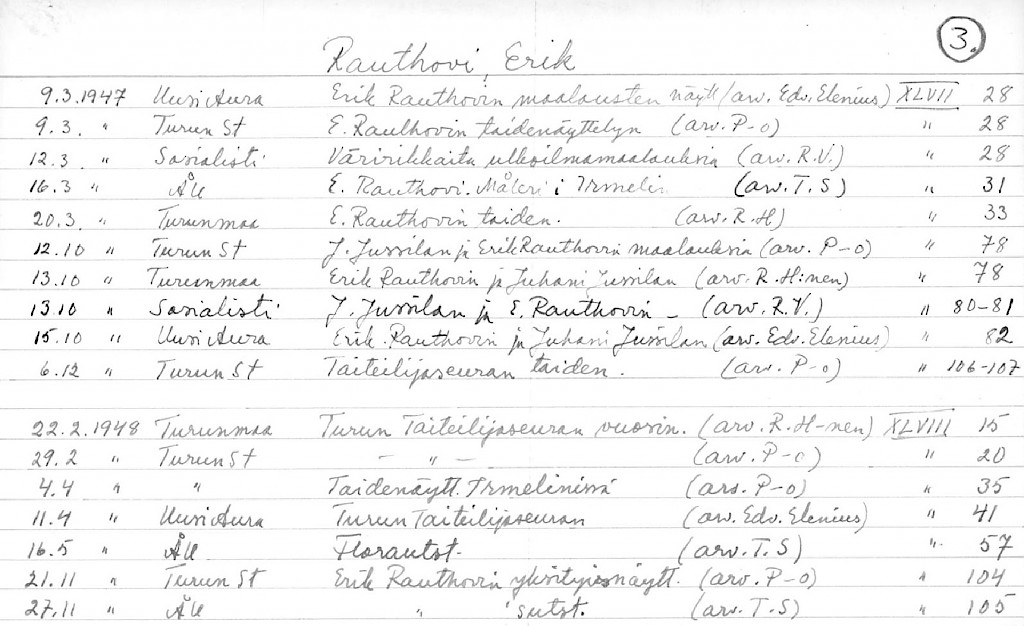 3.
Rauthovi, Erik
9.3.1947 Uusi Aura Erik Rauthovin maalausten näytt (arv. Edv. Elenius) XLVII 28
9.3. " Turun St E. Rauthovin taidenäyttelyn (arv. P-o) " 28
12.3 " Sosialisti Väririkkaita ulkoilmamaalauksia (arv. R.V.) " 28
16.3 " ÅU E. Rauthovi. Måleri i Irmelin (arv. T.S) " 31
20.3. " Turunmaa E. Rauthovin taiden. (arv. R.H) " 33
12.10 " Turun St J. Jussilan ja Erik Rauthovin maalauksia (arv. P-o) " 78
13.10 " Turunmaa Erik Rauthovin ja Juhani Jussilan (arv. R.H:nen) " 78
13.10 " Sosialisti J. Jussilan ja E. Rauthovin - (arv. R.V.) " 80-81
15.10 " Uusi Aura Erik Rauthovin ja Juhani Jussilan (arv. Edv. Elenius) " 82
6.12 " Turun St Taiteilijaseuran taiden. (arv. P-o) " 106-107
22.2.1948 Turunmaa Turun Taiteilijaseuran vuosin. (arv. R.H-nen) XLVIII 15
29.2 " Turun St - " - (arv. P-o) " 20
4.4 " " Taidenäytt. Irmelinissä (ars. P-o) " 35
11.4 " Uusi Aura Turun Taiteilijaseuran (arv. Edv. Elenius) " 41
16.5 " ÅU Florautst. (arv. T.S) " 57
21.11 " Turun St Erik Rauthovin yksityisnäytt. (arv. P-o) " 104
27.11 " ÅU " sutst. (arv. T.S) " 105